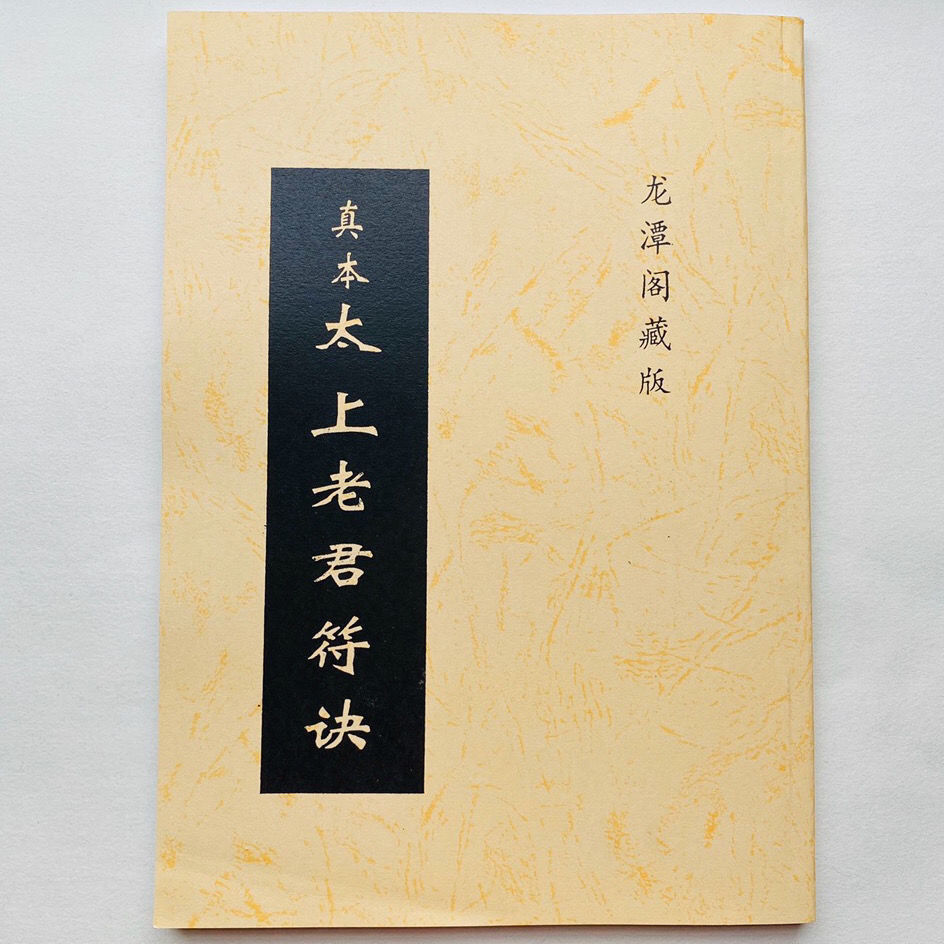 龙潭阁藏版
真本太上老君符诀